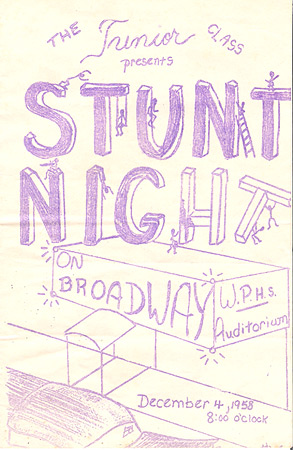 THE Junior CLASS
presents
STUNT
NIGHT
ON
BROADWAY
W.P.H.S.
Auditorium
December 4, 1958
8:00 o'clock